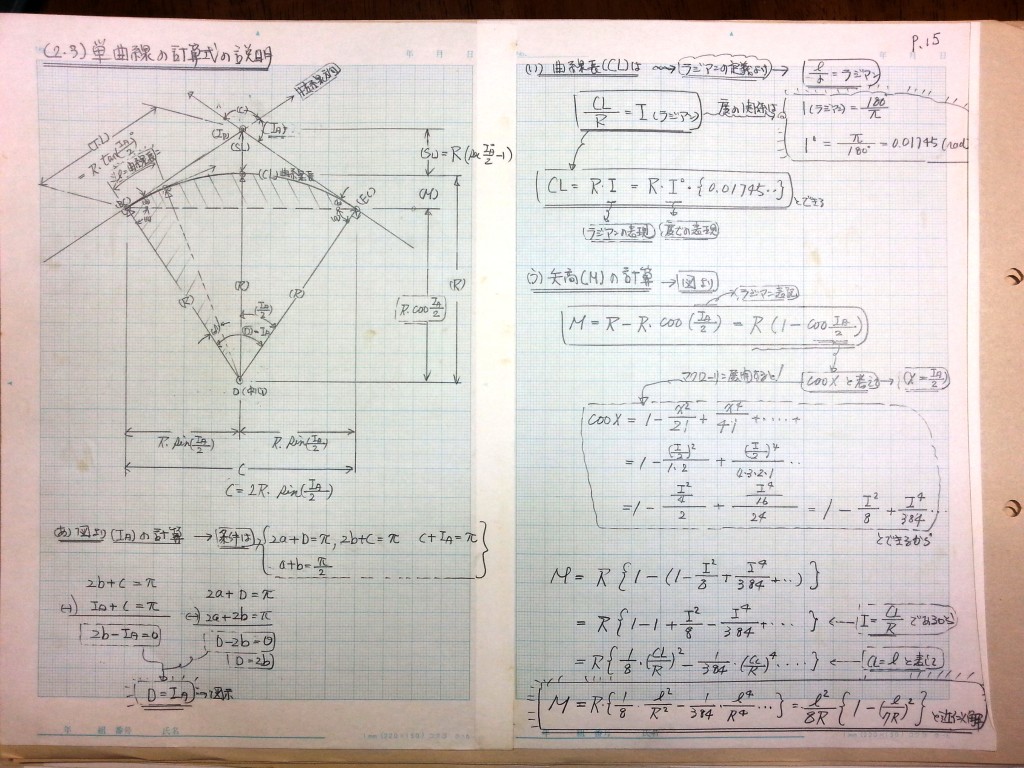 (2.3) 単曲線の計算式の説明
(TL)
= R・tan(IA/2)
(C)
(IP)
(IA)
(SL)
(CL) 曲線長
(SL) = R(sec IA/2 - 1)
(M)
(BC)
(EC)
(R)
(R)
(R)
(R)
R・cos IA/2
(IA/2)
(D)=IA
O(中心)
R・sin(IA/2)
R・sin(IA/2)
C
C = 2R・sin(IA/2)
(あ) 図より (IA)の計算 → 条件は、{ 2a+D=π, 2b+C=π C+IA=π
a+b=π/2 }
2b+C=π
(-) IA+C=π
2b-IA=0
2a+D=π
(-) 2a+2b=π
D-2b=0
D=2b
D=IA → 図示
年 組 番号 氏名
P.15
年 月 日
(い) 曲線長(CL)は → ラジアンの定義より → l/r = ラジアン
CL/R = I (ラジアン)
度の関係は
1(ラジアン) = 180/π
1° = π/180° = 0.01745 (rad)
CL = R・I = R・I°・{0.01745‥} とできる
ラジアンの表現
度での表現
(う) 矢高(M)の計算 → 図より
ラジアン表記
M = R - R・cos(IA/2) = R(1 - cos IA/2)
マクローリン展開すると!
cos X と考える → (X = IA/2)
cos X = 1 - x²/2! + x⁴/4! + ‥‥ +
= 1 - (I/2)²/1・2 + (I/2)⁴/4・3・2・1 ‥
= 1 - (I²/4)/2 + (I⁴/16)/24 = 1 - I²/8 + I⁴/384 ‥‥
とできるから
M = R{1 - (1 - I²/8 + I⁴/384 + ‥)}
= R{1 - 1 + I²/8 - I⁴/384 + ‥} ← I = CL/R であるから
= R{1/8・(CL/R)² - 1/384・(CL/R)⁴ ‥‥} ← CL = l と表して
M = R・{1/8・l²/R² - 1/384・l⁴/R⁴ ‥} = l²/8R {1 - (l/7R)²} と近似解
年 組 番号 氏名